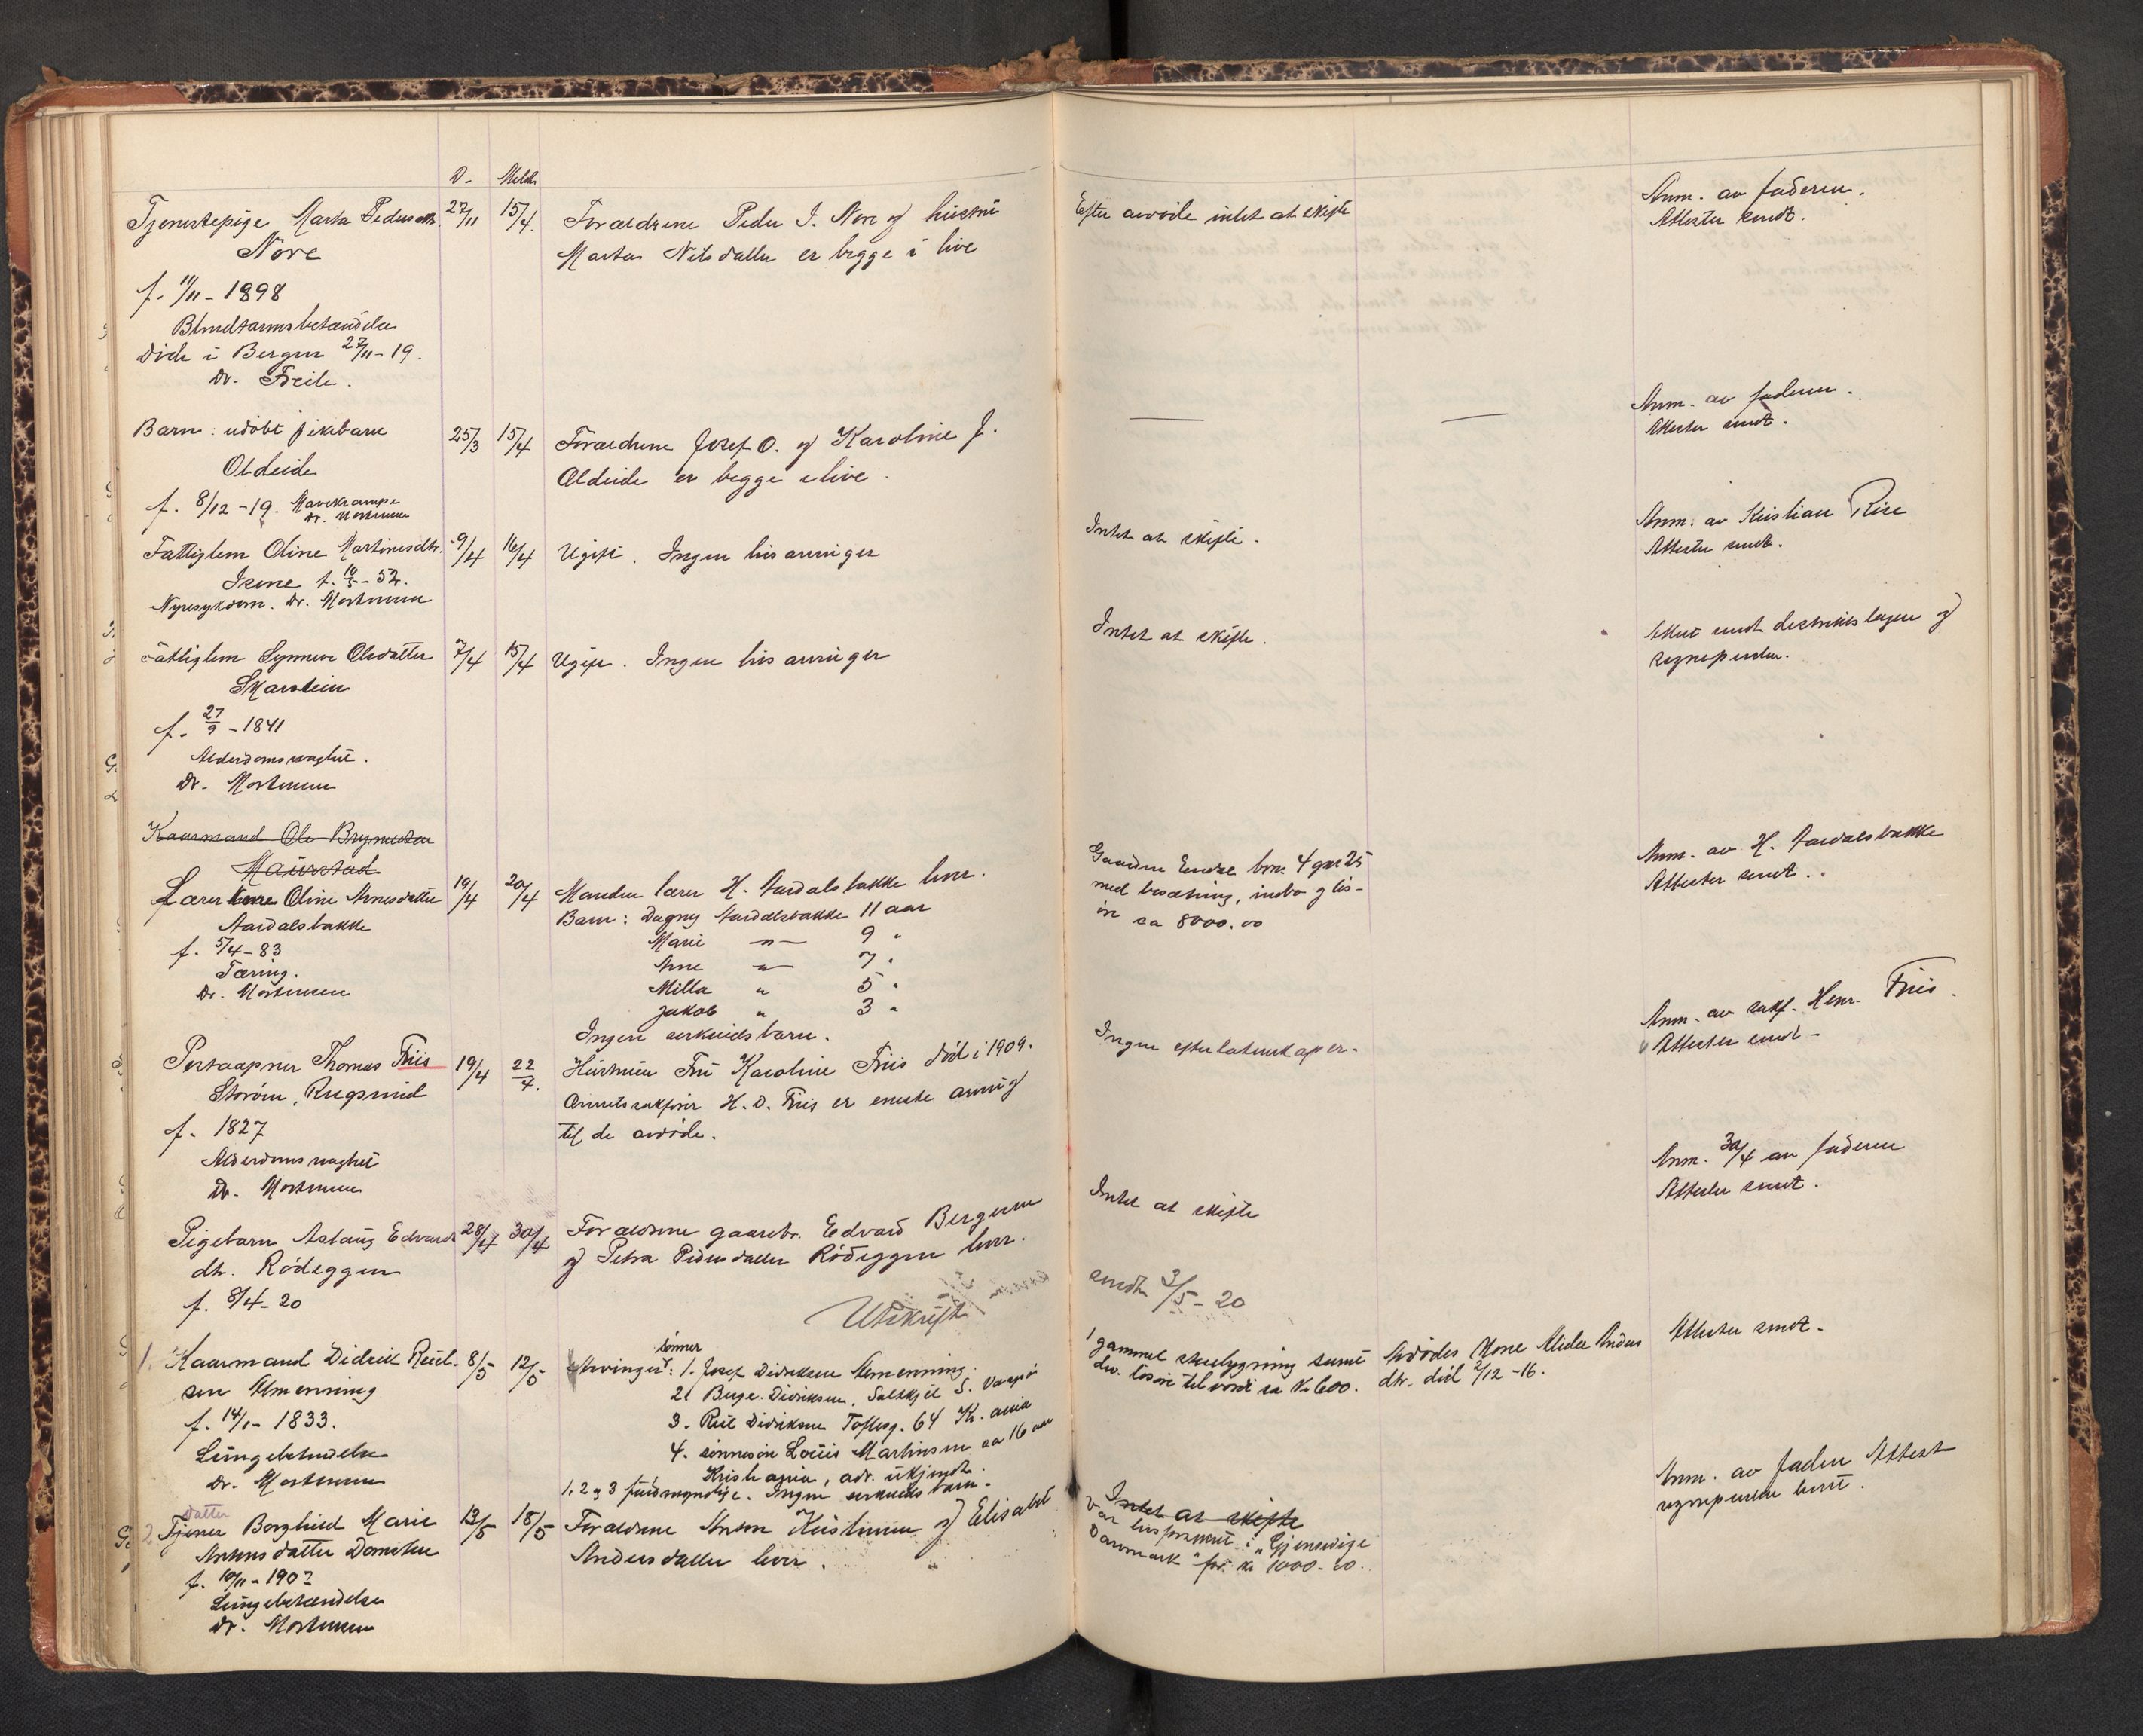 D. Meldt
Tjenestepige Marta Pedersdtr. 27/11 15/4. Forældrene Peder I. Nore og hustru Efter avdøde intet at skifte Anm. av faderen.
Nore Marta Nilsdatter er begge i live Attester sendt.
f. 11/11 - 1898
Blindtarmsbetændelse
Døde i Bergen 27/11 - 19.
Dr.
Barn: udøbt pikebarn 25/3 15/4 Forældrene Josef O. og Karoline J. — — Anm. av faderen.
Oldeide Oldeide er begge i live. Attester sendt.
f. 8/12 - 19. Mavekrampe
Dr. Mortensen
Fattiglem Oline Martinusdtr. 9/4 16/4 Ugift. Ingen livsarvinger Intet at skifte. Anm. av Kristian Rise
Isene f. 10/5 - 52. Attester sendt.
Nyresykdom. Dr. Mortensen
Fattiglem Synneve Olsdatter 7/4 15/4 Ugift. Ingen livsarvinger Intet at skifte. Attest sendt distriktslægen og
Skarstein sognepresten.
f. 27/9 - 1841
Alderdomssvaghet.
Dr. Mortensen
Kaarmand Ole Brynildsen
Maurstad
Lærer kone Oline Arnesdatter 19/4 20/4 Manden lærer H. Aardalsbakke lever. Gaarden Endre brn. 4 gnr 25 Anm. av H. Aardalsbakke
Aardalsbakke Barn: Dagny Aardalsbakke 11 aar med besætning, indbo og løs- Attester sendt.
f. 5/4 - 83 Marie —"— 9 " øre ca 8000.00
Tæring. Arne —"— 7 "
Dr. Mortensen Milla " 5 "
Jakob " 3 "
Ingen særkuldsbarn.
Postaapner Thomas Friis 19/4 22/4. Hustruen Fru Karoline Friis død i 1909. Ingen efterlatenskaper. Anm. av sakf. Henr. Friis.
Storøen, Rugsund Overretssakfører H. D. Friis er eneste arving Attester sendt.
f. 1827 til de avdøde.
Alderdomssvaghet
Dr. Mortensen
Pigebarn Aslaug Edvards 28/4 30/4 Forældrene gaardbr. Edvard Bergersen Intet at skifte Anm. 30/4 av faderen
dtr. Rødeggen og Petra Pedersdatter Rødeggen lever. Attester sendt.
f. 8/4 - 20
Utskrift sendt 3/5 - 20
1. Kaarmand Didrik Reiel- 8/5 12/5 Arvinger: sønner 1. Josef Didriksen Almenning. 1 gammel stuebygning samt Avdødes kone Alida Anders Attester sendt.
sen Almenning 2. Berge Didriksen, Saltskjel S. Vaagsø div. løsøre til værdi ca kr 600. dtr. død 2/12 - 16.
f. 14/1 - 1833. 3. Reiel Didriksen Toftesg. 64 Kr.ania
Lungebetændelse 4. sønnesøn Louis Martinsen ca 16 aar
Dr. Mortensen Kristiania, adr. ukjendt.
1, 2 og 3 fuldmyndige. Ingen særkuldsbarn.
2. datter Tjener Borghild Marie 13/5 18/5 Forældrene Anton Kristensen og Elisabet Intet at skifte Anm. av faderen Attest
Antonsdatter Domsten Andersdatter lever. Var livsforsikret i "Gjensidige sognepresten levert.
f. 10/11 - 1902 Danmark" for kr 1000.00.
Lungebetændelse
Dr. Mortensen